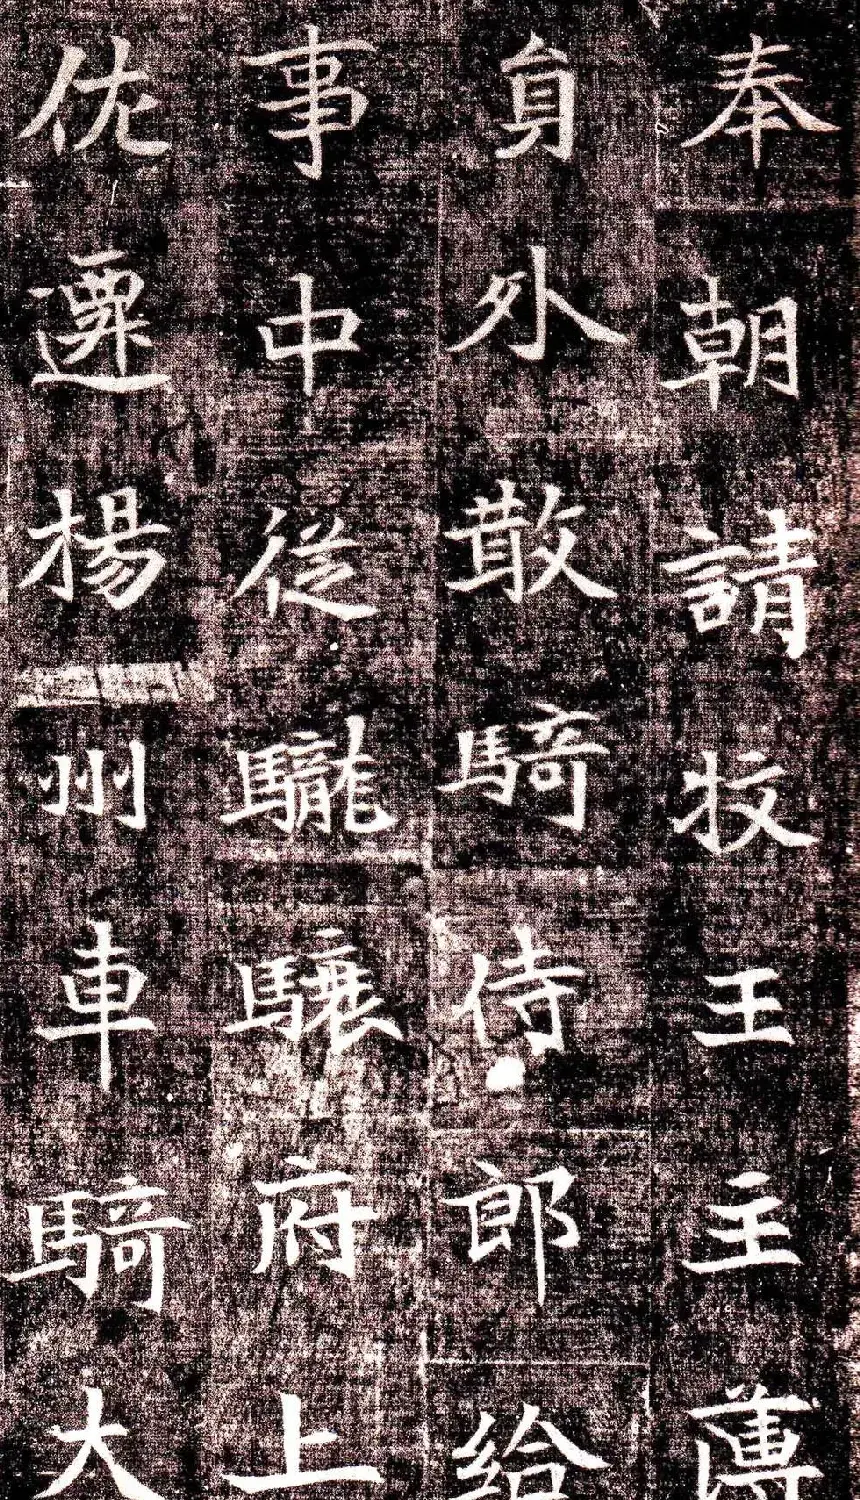 奉朝請牧王主薄
員外散騎侍郎給
事中從䮾驤府上
佐遷揚州車騎大